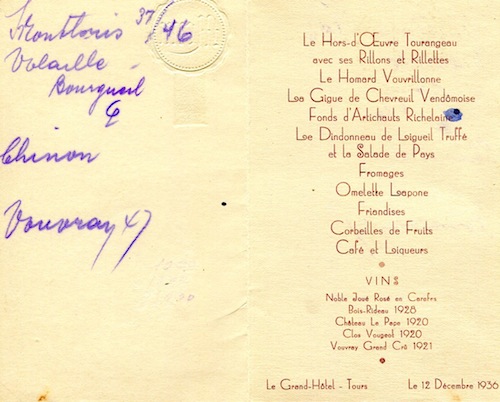 Montlouis 37/46
Volaille -
Bourgueil
Chinon
Vouvray 47
Le Hors-d'Œuvre Tourangeau
avec ses Rillons et Rillettes
Le Homard Vouvrillonne
La Gigue de Chevreuil Vendômoise
Fonds d'Artichauts Richelaine
Le Dindonneau de Ligueil Truffé
et la Salade de Pays
Fromages
Omelette Lapone
Friandises
Corbeilles de Fruits
Café et Liqueurs
VINS
Noble Joué Rosé en Carafes
Bois-Rideau 1928
Château Le Pape 1920
Clos Vougeot 1920
Vouvray Grand Crû 1921
Le Grand-Hôtel - Tours
Le 12 Décembre 1936